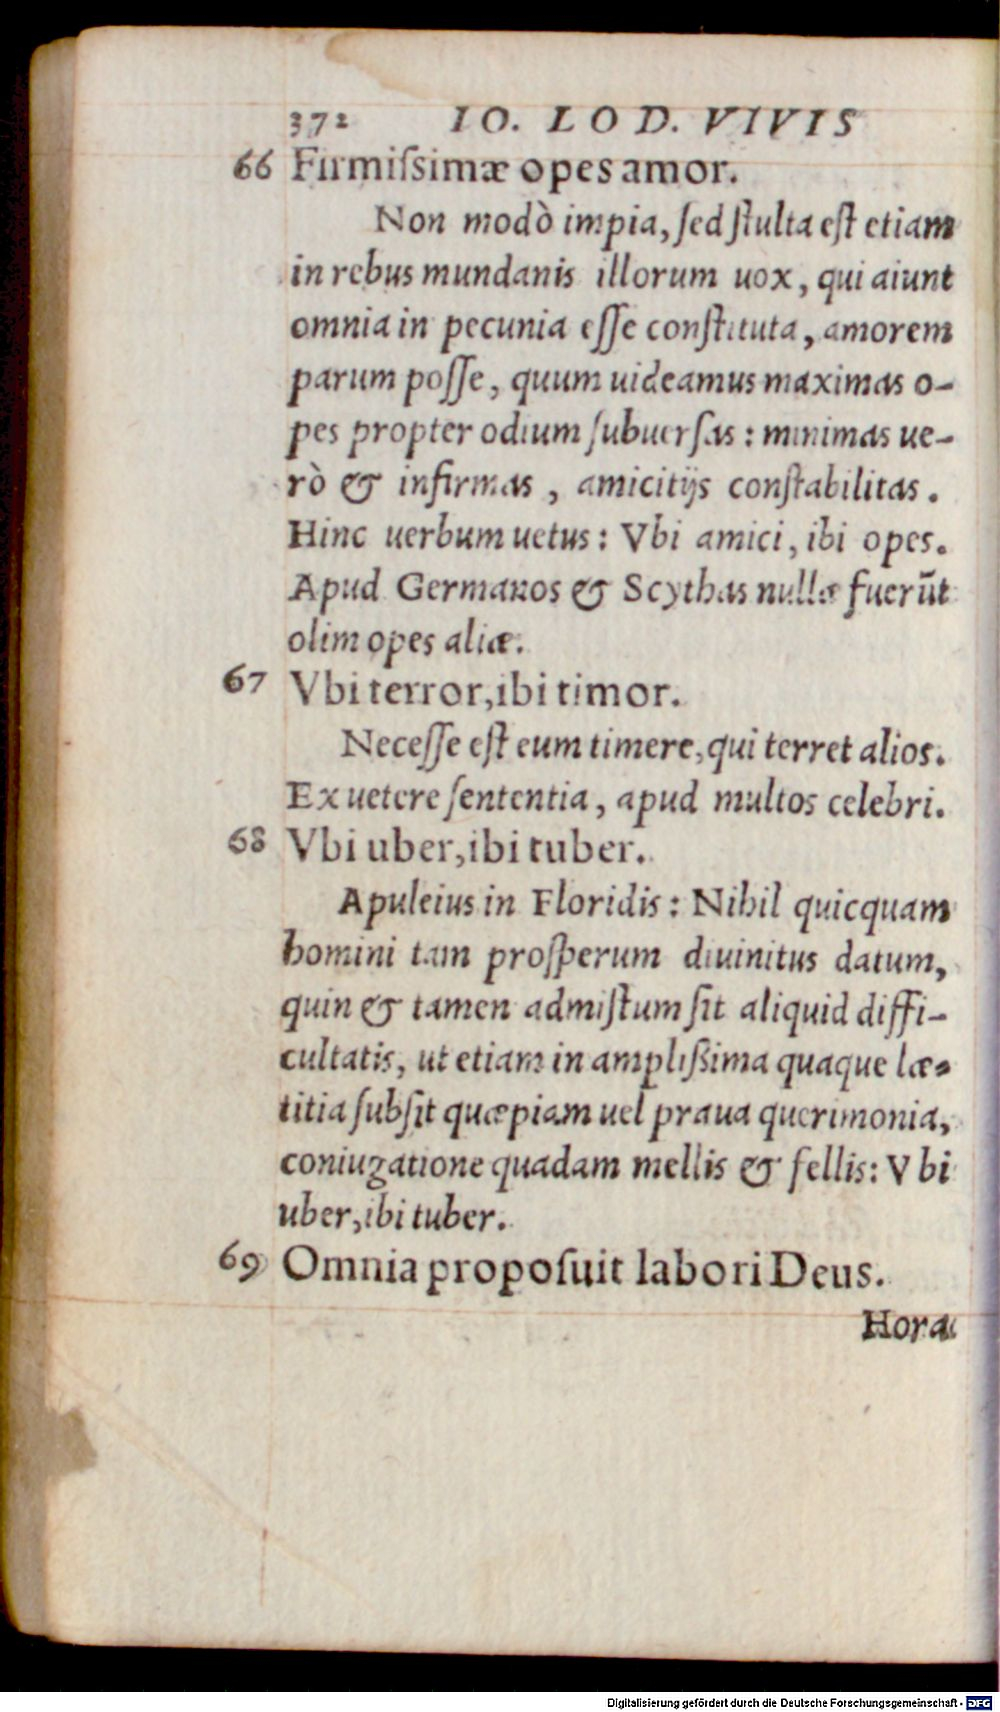 372 IO. LOD. VIVIS
66 Firmiſsimæ opes amor.
Non modò impia, ſed ſtulta eſt etiam
in rebus mundanis illorum uox, qui aiunt
omnia in pecunia eſſe conſtituta, amorem
parum poſſe, quum uideamus maximas o-
pes propter odium ſubuerſas: minimas ue-
rò & infirmas, amicitijs conſtabilitas.
Hinc uerbum uetus: Vbi amici, ibi opes.
Apud Germanos & Scythas nullæ fuerũt
olim opes aliæ.
67 Vbi terror, ibi timor.
Neceſſe eſt eum timere, qui terret alios.
Ex uetere ſententia, apud multos celebri.
68 Vbi uber, ibi tuber.
Apuleius in Floridis: Nihil quicquam
homini tam proſperum diuinitus datum,
quin & tamen admiſtum ſit aliquid diffi-
cultatis, ut etiam in amplißima quaque læ-
titia ſubſit quæpiam uel praua querimonia,
coniugatione quadam mellis & fellis: Vbi
uber, ibi tuber.
69 Omnia propoſuit labori Deus.
Hora
Digitalisierung gefördert durch die Deutsche Forschungsgemeinschaft - DFG